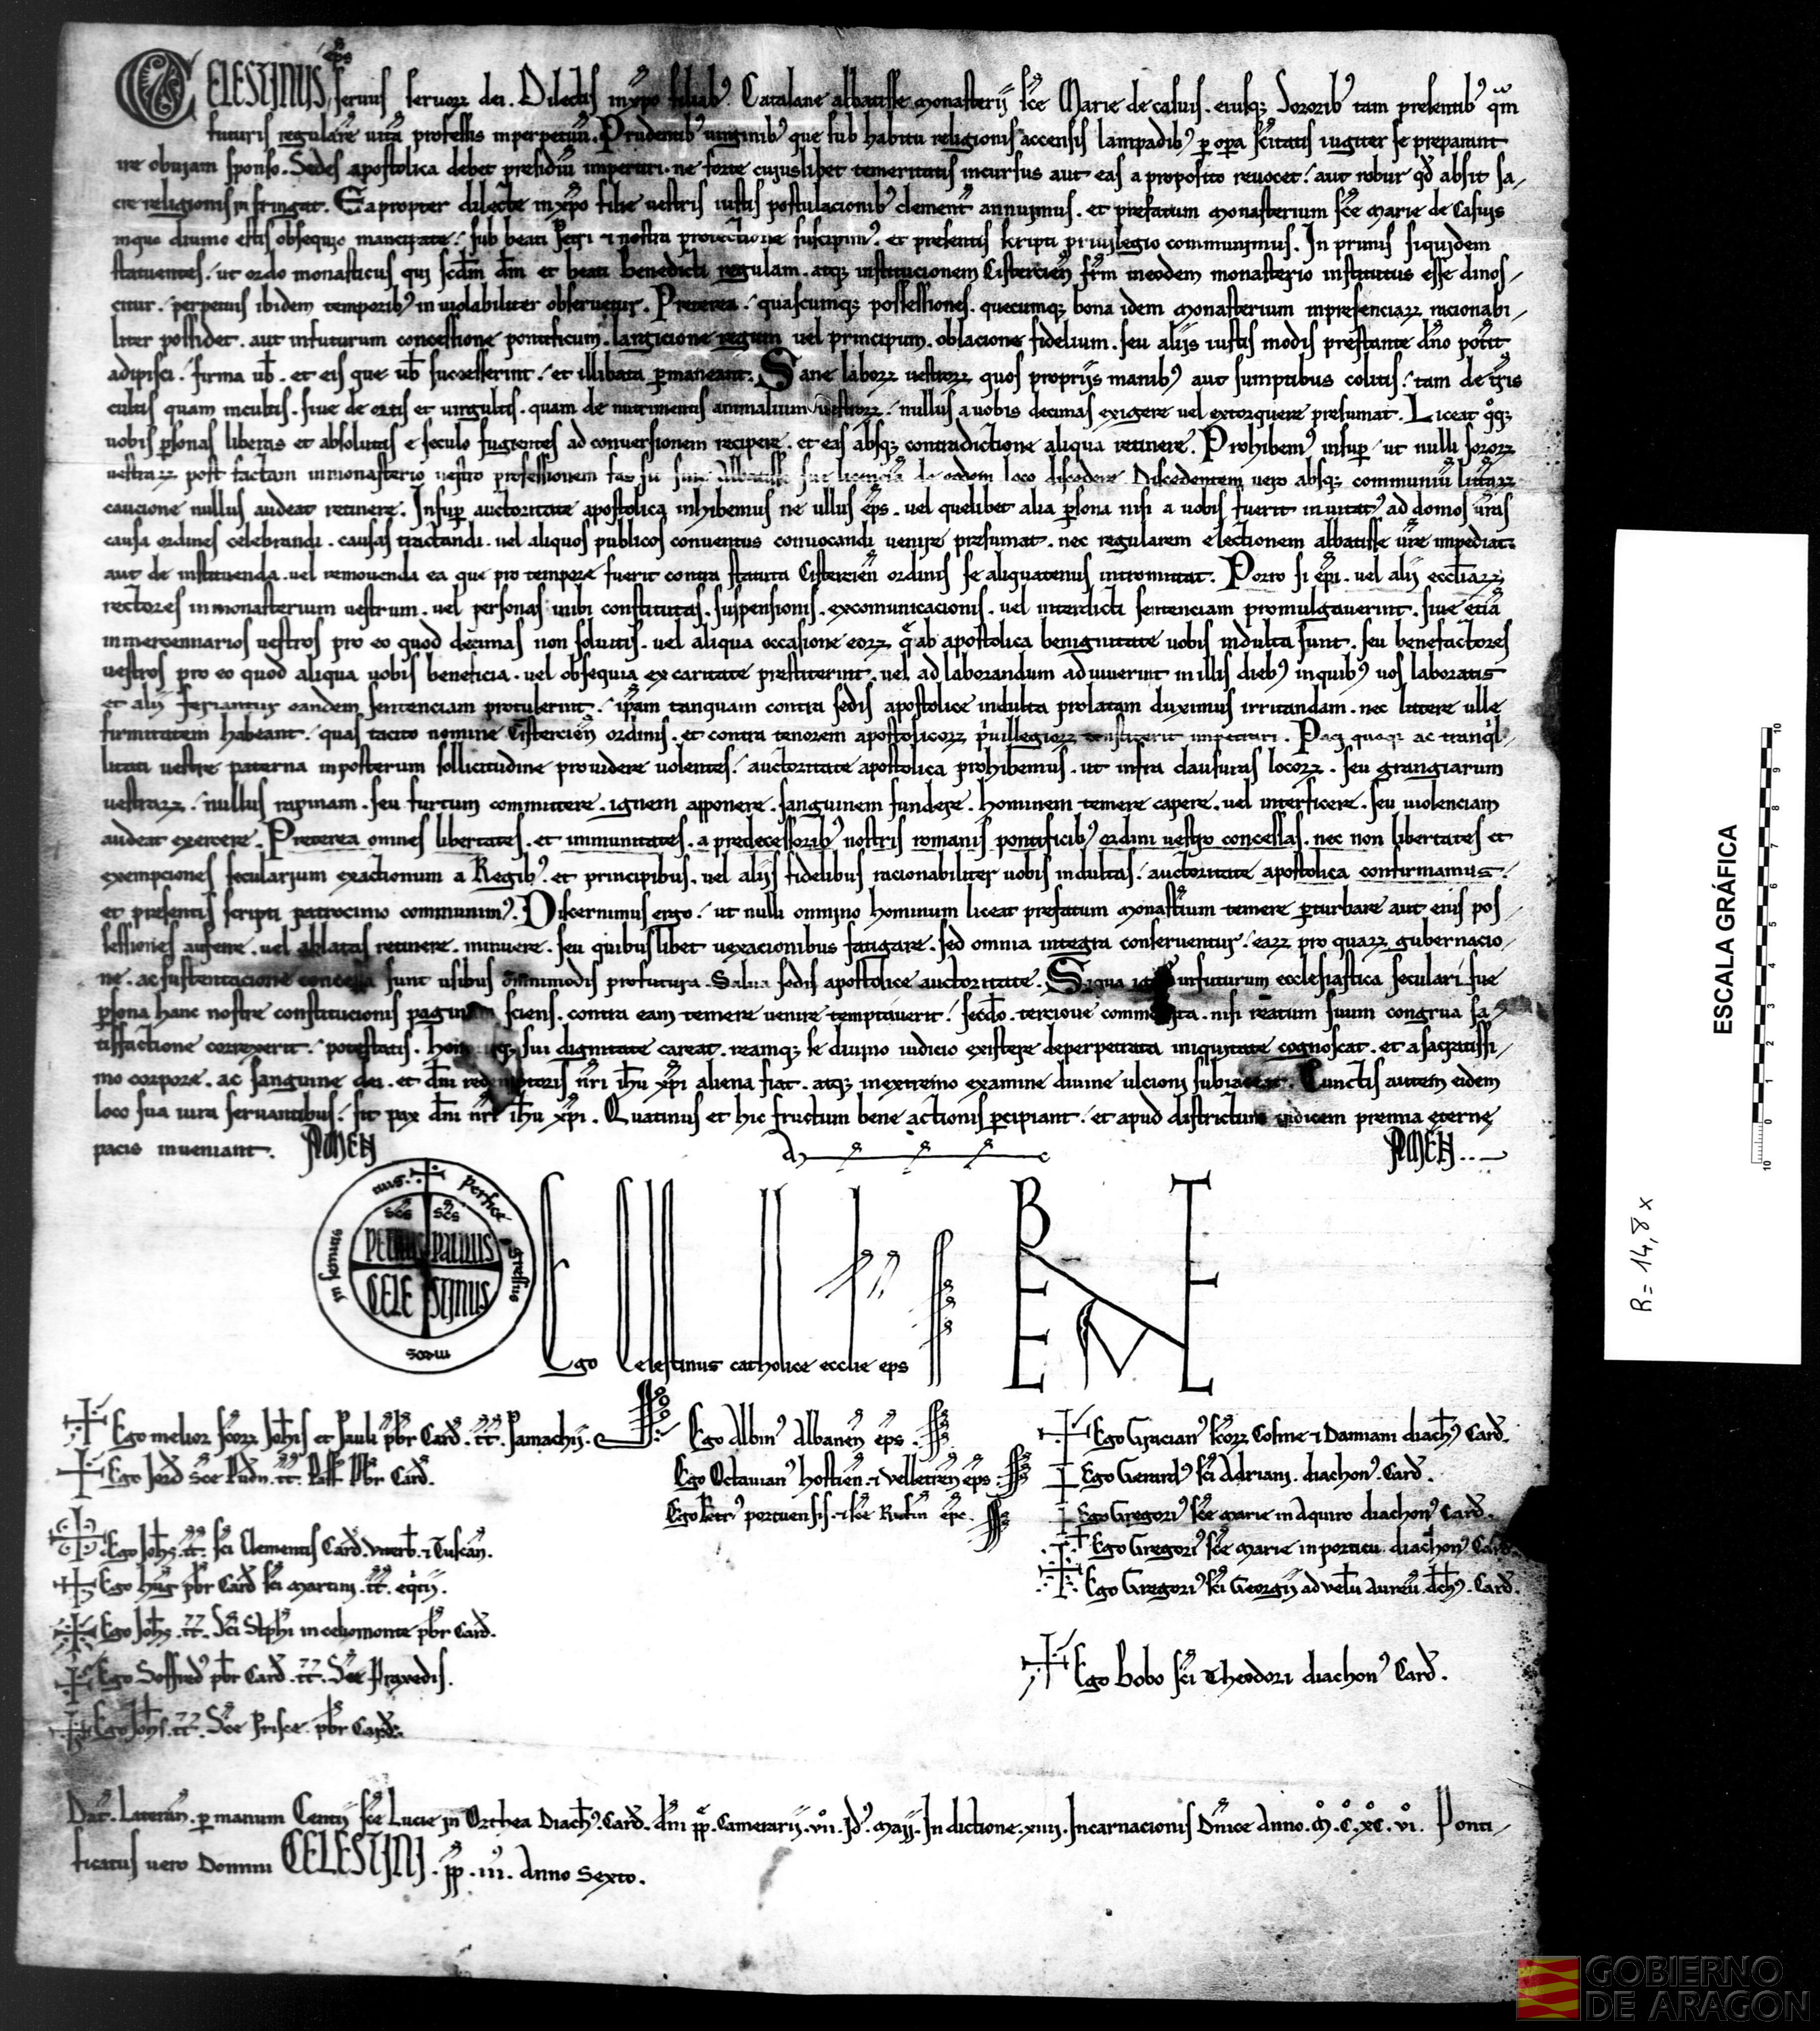 CELESTINUS ep̄s servus servorꝝ dei. Dilectis in xp̄o filiabꝰ Catalane abbatisse monasterij sc̄e Marie de casuis. eiusqꝫ Sororibꝰ tam presentibꝰ qm̄
futuris regularē vitā professis inperpetuū. Prudentibꝰ virginibꝰ que sub habitu religionis accensis lampadibꝰ ꝑ oꝑa sc̄itatis iugiter se preparant
ire obviam sponso. Sedes apostolica debet presidiū impertiri. ne forte cujuslibet temeritatis incursus aut eas a proposito revocet / aut robur qd̄ absit sa/
cre religionis infringat. Eapropter dilecte in xp̄o filie vestris iustis postulacionibꝰ clementr̄ annuimus. et prefatum monasterium sc̄e marie de Casuis
inquo divino estis obsequio mancipate / sub beati Petri ⁊ nostra protectione suscipimꝰ. et presentis scripti privilegio communimus. In primis siquidem
statuentes / ut ordo monasticus qui scd̄m dm̄ et beati Benedicti regulam. atqꝫ institucionem Cistercien̄ fr̄m ineodem monasterio institutus esse dinos/
citur / perpetuis ibidem temporibꝰ inviolabiliter observetur. Preterea / quascumqꝫ possessiones. quecumqꝫ bona idem monasterium inpresenciarꝝ racionabi/
liter possidet. aut infuturum concessione pontificum. largicione regum vel principum. oblacione fidelium. seu alijs iustis modis prestante dn̄o pot̄it
adipisci / firma vb̄. et eis que vb̄ successerint / et illibata ꝑmaneant. Sane laborꝝ vestrorꝝ quos proprijs manibꝰ aut sumptibus colitis / tam de tr̄is
cultis quam incultis. sive de ortis et virgultis. quam de nutrimentis animalium vestrorꝝ / nullus avobis decimas exigere vel extorquere presumat. Liceat qͦqꝫ
vobis ꝑsonas liberas et absolutas e seculo fugientes ad conversionem recipere. et eas absqꝫ contradictione aliqua retinere. Prohibemꝰ insuꝑ / ut nulli sororꝝ
vestrarꝝ post factam inmonasterio vestro professionem fas sit sine Abbatisse sue licencia de eodem loco discedere Discedentem vero absqꝫ communiū litt̄arꝝ
caucione nullus audeat retinere. Insuꝑ auctoritate apostolica inhibemus ne ullus ep̄s. vel quelibet alia ꝑsona nisi a vobis fuerit invitatꝰ ad domos vr̄as
causa ordines celebrandi. causas tractandi. vel aliquos publicos conventus convocandi venire presumat. nec regularem electionem abbatisse vr̄e impediat.
aut de instituenda. vel removenda ea que pro tempore fuerit contra statuta Cistercien̄ ordinis se aliquatenus intromittat. Porro si ep̄i. vel alij eccl̄iarꝝ
rectores inmonasterium vestrum. vel personas inibi constitutas. suspensionis. excomunicacionis. vel interdicti sentenciam promulgaverint. sive etiā
inmercennarios vestros pro eo quod decimas non solvitis. vel aliqua occasione eorꝝ q̄ ab apostolica benignitate vobis indulta sunt. seu benefactores
vestros pro eo quod aliqua vobis beneficia. vel obsequia ex caritate prestiterint. vel ad laborandum adiuverint in illis diebꝰ inquibꝰ vos laboratis
et alij feriantur eandem sentenciam protulerint / ip̄am tanquam contra sedis apostolice indulta prolatam duximus irritandam. nec littere ulle
firmitatem habeant / quas tacito nomine Cistercien̄ ordinis. et contra tenorem apostolicorꝝ pͥvillegiorꝝ constiterit impetrari. Paci quoqꝫ ac tranqͥl/
litati vestre paterna inposterum sollicitudine providere volentes / auctoritate apostolica prohibemus. ut infra clausuras locorꝝ. seu grangiarum
vestrarꝝ / nullus rapinam. seu furtum committere. ignem apponere. sanguinem fundere. hominem temere capere. vel interficere. seu violenciam
audeat exercere. Preterea omnes libertates. et immunitates. a predecessoribꝰ nostris romanis pontificibꝰ ordini vestro concessas. nec non libertates et
exempciones secularium exactionum a Regibꝰ. et principibus. vel alijs fidelibus racionabiliter vobis indultas / auctoritate apostolica confirmamus.
et presentis scripti patrocinio communimꝰ. Discernimus ergo / ut nulli omnino hominum liceat prefatum monast̄ium temere ꝑturbare aut eius pos/
sessiones auferre. vel ablatas retinere. minuere. seu quibuslibet vexacionibus fatigare. sed omnia integra conserventur / earꝝ pro quarꝝ gubernacio/
ne. ac sustentacione concessa sunt usibus omnimodis profutura. Salva sedis apostolice auctoritate. Siqua igitur infuturum ecclesiastica secularisve
ꝑsona hanc nostre constitucionis paginam sciens. contra eam temere venire temptaverit / secd̄o. terciove commonita. nisi reatum suum congrua sa/
tisfactione correxerit / potestatis. honorisqꝫ sui dignitate careat. reamqꝫ se divino iudicio existere deperpetrata iniquitate cognoscat. et asacratissi/
mo corpore. ac sanguine dei. et dn̄i redemptoris nr̄i ih̄u xp̄i aliena fiat. atqꝫ inextremo examine divine ulcioni subiaceat. Cunctis autem eidem
loco sua iura servantibus / sit pax dn̄i nr̄i ih̄u xp̄i. Quatinus et hic fructum bone actionis ꝑcipiant / et apud districtum iudicem premia eterne
pacis inveniant. AMEN A E AMEN
sc̄s PETRUS sc̄s PAULUS CELESTINUS
Perfice gressus meos in semitis tuis
Ego Celestinus catholice ecclie eps
BENE VALETE
Ego melior sc̄orꝝ Joh̄is et Pauli p̄br Card̄. tt̄. Pamachij.
Ego Jord̄ sc̄e Pudn̄. tt̄. Past̄ p̄br Card̄.
Ego Joh̄s. tt̄. sc̄i Clementis Card̄. viterb̄. ⁊ Tuscan̄.
Ego huḡ p̄br Card̄ sc̄i martini. tt̄. eqͥtij.
Ego Joh̄s. tt̄. Sc̄i Steph̄i incelyomonte p̄br Card̄.
Ego Soffredꝰ p̄br Card̄. tt̄. Sc̄e Praxedis.
Ego Joh̄s. tt̄. Sc̄e Prisce. p̄br Card̄.
Ego Albinꝰ Albanen̄ ep̄s.
Ego Octavianꝰ hostien̄. ⁊ velletren̄ ep̄s.
Ego Petrꝰ portuensis. ⁊ sc̄e Rufin̄ ep̄c.
Ego Gracianꝰ sc̄orꝝ Cosme ⁊ Damiani diach̄ꝰ Card̄.
Ego Gerardꝰ sc̄i Adriani. diachonꝰ. Card̄.
Ego Gregoriꝰ sc̄e marie in Aquiro diachonꝰ Card̄.
Ego Gregoriꝰ sc̄e marie in porticu. diachonꝰ Card̄.
Ego Gregoriꝰ sc̄i Georgij ad vel̄u aureū. dc̄hꝰ. Card̄.
Ego bobo sc̄i Theodori diachonꝰ Card̄.
Dat̄. Lateran̄. ꝑ manum Centij sc̄e Lucie in Orthea Diach̄ꝰ. Card̄. dn̄i pp̄. Camerarij. vii. Jdꝰ. Maij. Indictione. xiiij. Incarnacionis Dn̄ice Anno. M. C. XC. vi. Ponti/
ficatus vero Domni CELESTINI. pp̄. iii. Anno Sexto.
ESCALA GRÁFICA
10 9 8 7 6 5 4 3 2 1 0 10
R= 14,8x
GOBIERNO
DE ARAGON